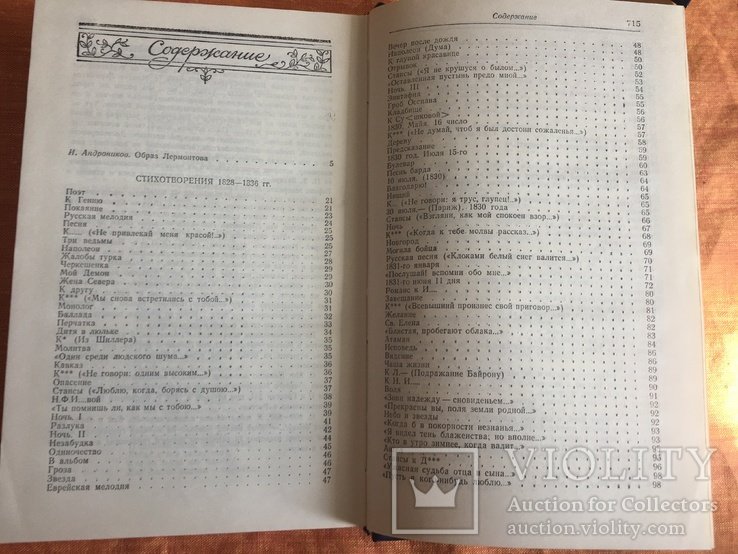 Содержание
И. Андроников. Образ Лермонтова 5
СТИХОТВОРЕНИЯ 1828—1836 гг.
Поэт 21
К Гению 21
Покаяние 22
Русская мелодия 23
Песня 24
К.... («Не привлекай меня красой!..») 25
Три ведьмы 25
Наполеон 25
Жалобы турка 28
Черкешенка 29
Мой Демон 29
Жена Севера 30
К другу 31
К*** («Мы снова встретились с тобой...») 31
Монолог 31
Баллада 32
Перчатка 33
Дитя в люльке 34
К* (Из Шиллера) 34
Молитва 35
«Один среди людского шума...» 35
Кавказ 36
К*** («Не говори: одним высоким...») 36
Опасение 37
Стансы («Люблю, когда, борясь с душою...») 37
Н.Ф.И....вой 38
«Ты помнишь ли, как мы с тобою...» 39
Ночь. I 39
Разлука 41
Ночь. II 42
Незабудка 44
Одиночество 45
В альбом 46
Гроза 46
Звезда 47
Еврейская мелодия 47
Содержание
715
Вечер после дождя 48
Наполеон (Дума) 48
К глупой красавице 50
Отрывок 50
Стансы («Я не крушуся о былом...») 52
«Оставленная пустынь предо мной...» 52
Ночь. III 53
Эпитафия 54
Гроб Оссиана 55
Кладбище 55
К Су<шковой> 56
1830. Майя. 16 число 57
К*** («Не думай, чтоб я был достоин сожаленья...») 57
Дереву 58
Предсказание 59
1830 год. Июля 15-го 60
Булевар 60
Песнь барда 62
10 июля. (1830) 63
Благодарю! 63
Нищий 64
К*** («Не говори: я трус, глупец!..») 65
30 июля.— (Париж). 1830 года 65
Стансы («Взгляни, как мой спокоен взор...») 65
Ночь 67
К*** («Когда к тебе молвы рассказ...») 68
Новгород 68
Могила бойца 69
Русская песня («Клоками белый снег валится...») 70
1831-го января 71
«Послушай! вспомни обо мне...» 71
1831-го июня 11 дня 72
Романс к И.... 80
Завещание 81
К*** («Всевышний произнес свой приговор...») 82
Желание
Св. Елена
«Блистая, пробегают облака...»
Атаман
Исповедь
Видение
Чаша жизни
К Л.— (Подражание Байрону)
К Н. И....
Воля
«Зови надежду — сновиденьем...»
«Прекрасны вы, поля земли родной...»
Небо и звезды 92
«Когда б в покорности незнанья...»
«Я видел тень блаженства; но вполне...» 93
«Кто в утро зимнее, когда валит...»
Стансы к Д***
«Ужасная судьба отца и сына...» 98
«Пусть я кого-нибудь люблю...» 98
VIOLITY
Auction for Collectors
auction.violity.com